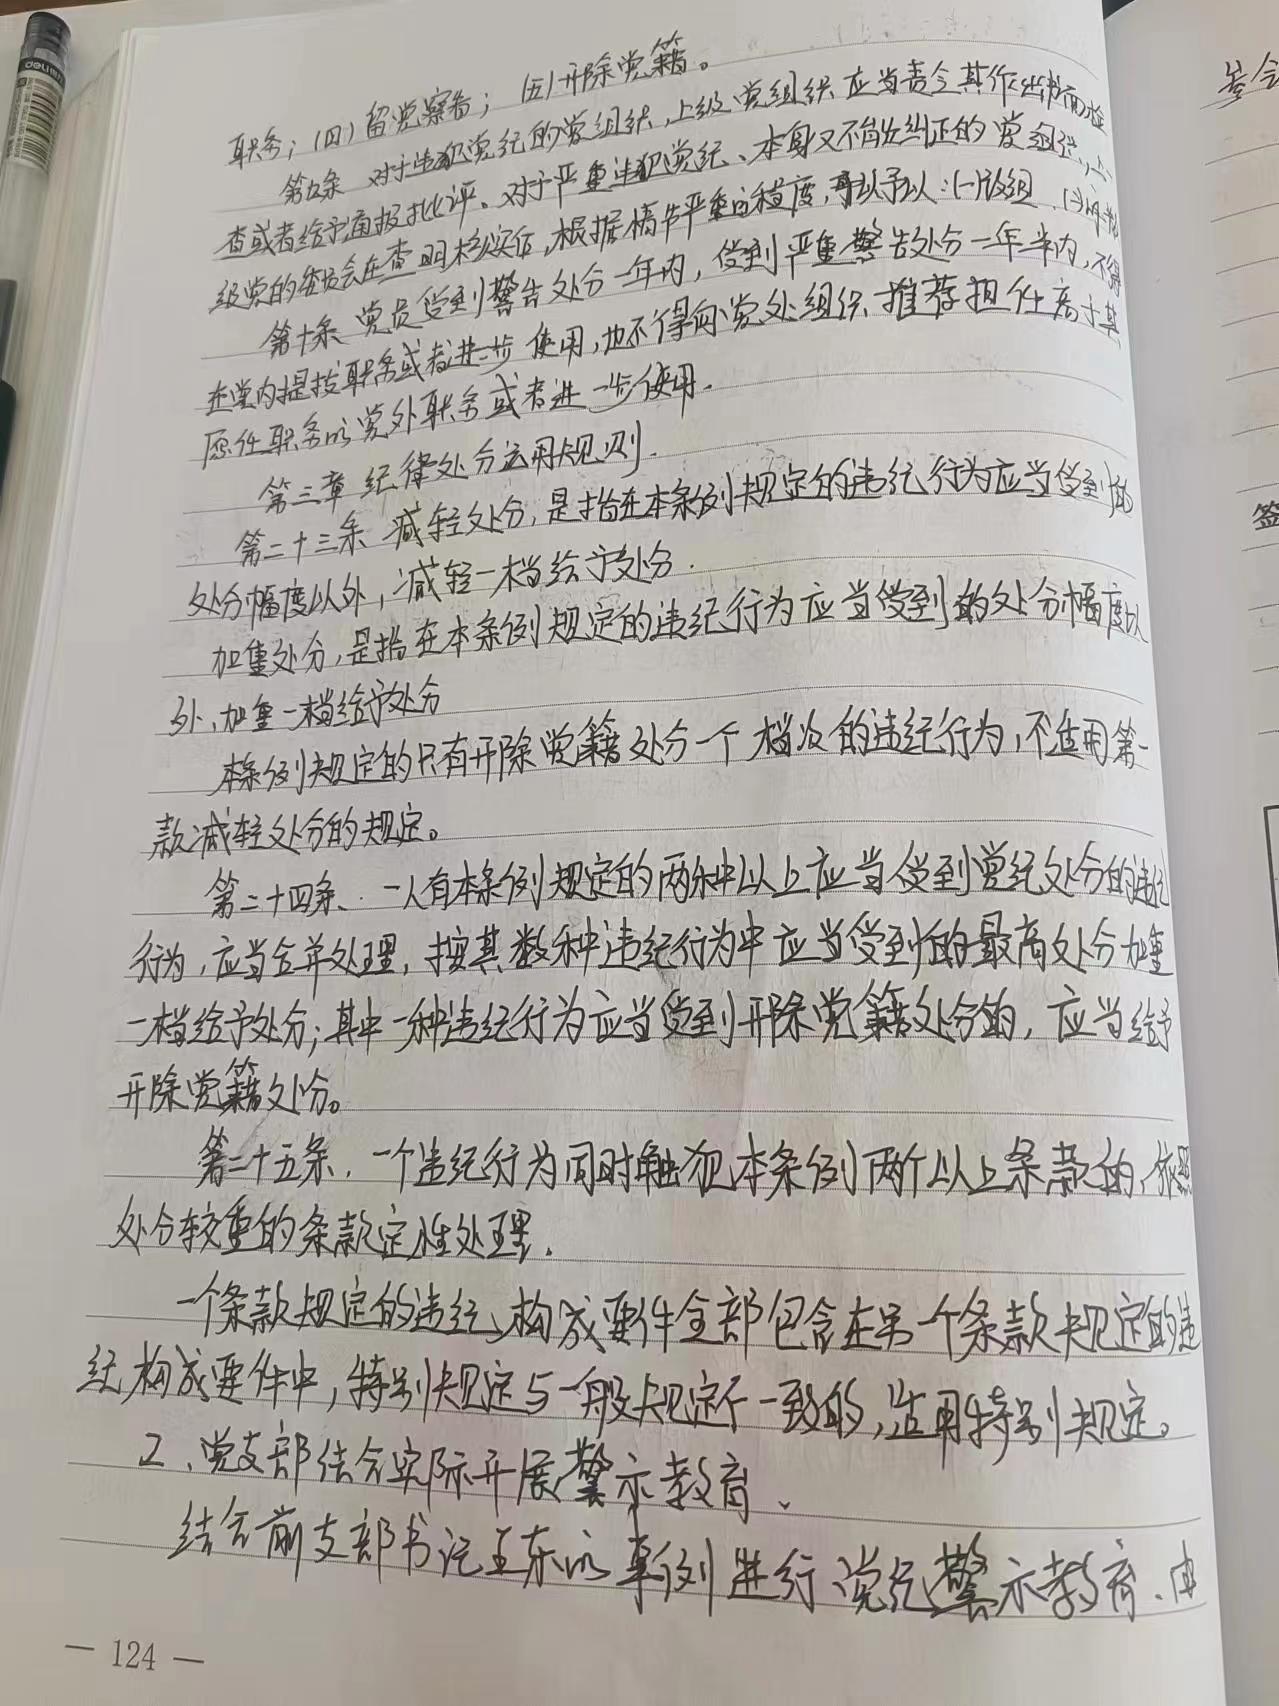 职务；（四）留党察看；（五）开除党籍。
第九条 对于违犯党纪的党组织，上级党组织应当责令其作出书面检
查或者给予通报批评。对于严重违犯党纪、本身又不能纠正的党组织，上
级党的委员会在查明核实后，根据情节严重的程度，可以予以：（一）改组
第十条 党员受到警告处分一年内，受到严重警告处分一年半内，不得
在党内提拔职务或者进一步使用，也不得向党处组织推荐担任高于其
原任职务的党外职务或者进一步使用.
第三章 纪律处分运用规则.
第二十三条 减轻处分，是指在本条例规定的违纪行为应当受到的
处分幅度以外，减轻一档给予处分.
加重处分，是指在本条例规定的违纪行为应当受到的处分幅度以
外，加重一档给予处分
本条例规定的只有开除党籍处分一个档次的违纪行为，不适用第一
款减轻处分的规定。
第二十四条、一人有本条例规定的两种以上应当受到党纪处分的违纪
行为，应当合并处理，按其数种违纪行为中应当受到的最高处分加重
一档给予处分；其中一种违纪行为应当受到开除党籍处分的，应当给予
开除党籍处分。
第二十五条，一个违纪行为同时触犯本条例两个以上条款的，依照
处分较重的条款定性处理.
一个条款规定的违纪构成要件全部包含在另一个条款规定的违
纪构成要件中，特别规定与一般规定不一致的，适用特别规定。
2、党支部结合实际开展警示教育、
结合前支部书记王东的事例进行党纪警示教育、由
— 124 —
deli
签